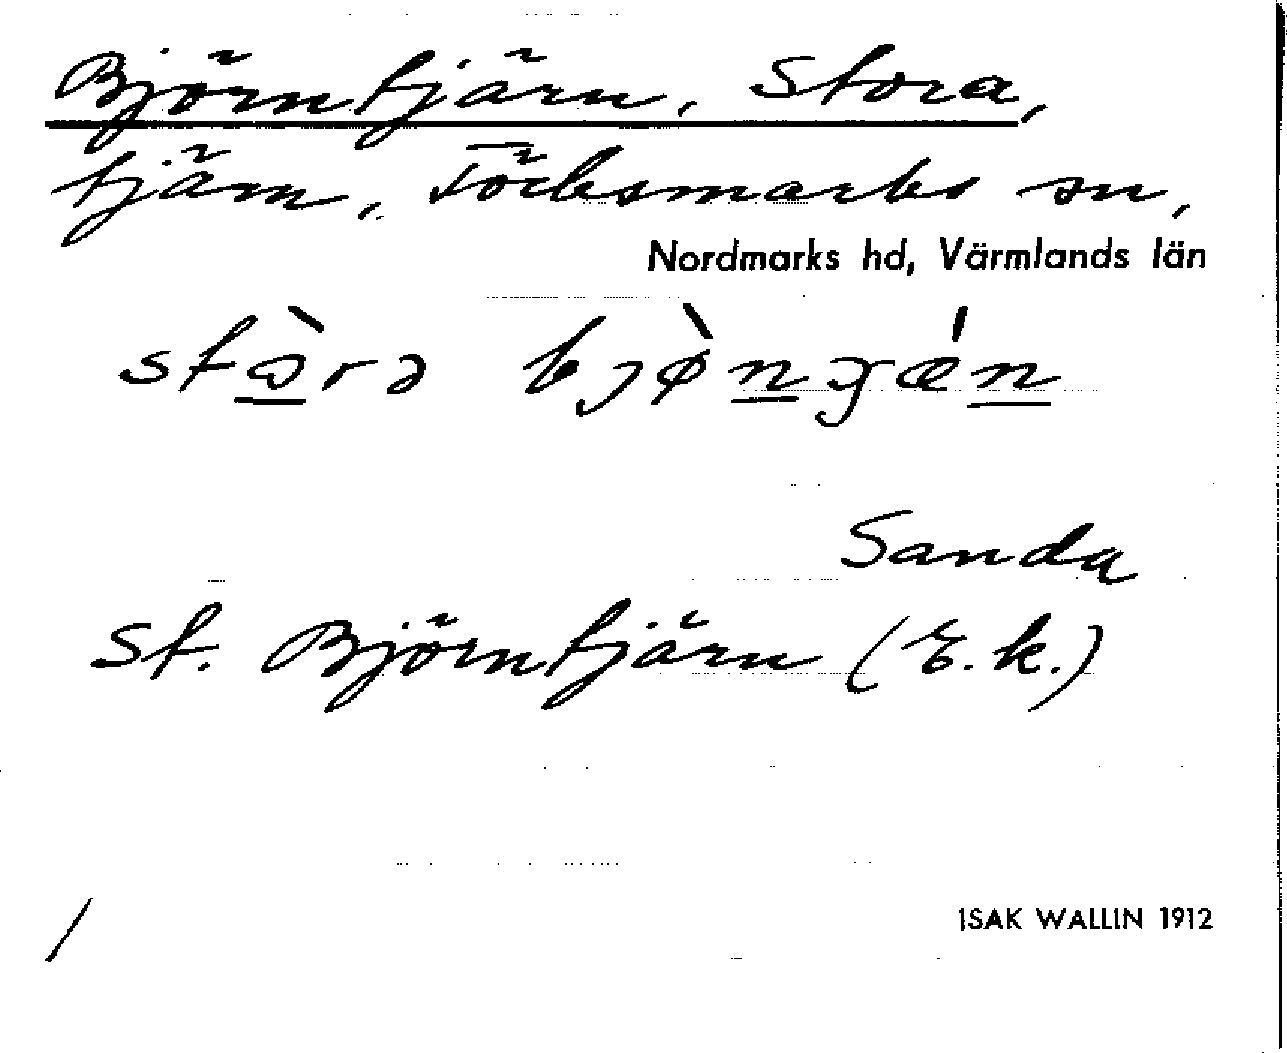 Björntjärn, Stora,
tjärn, Töcksmarks sn,
Nordmarks hd, Värmlands län
Sanda
St. Björntjärn (E.k.)
/
ISAK WALLIN 1912